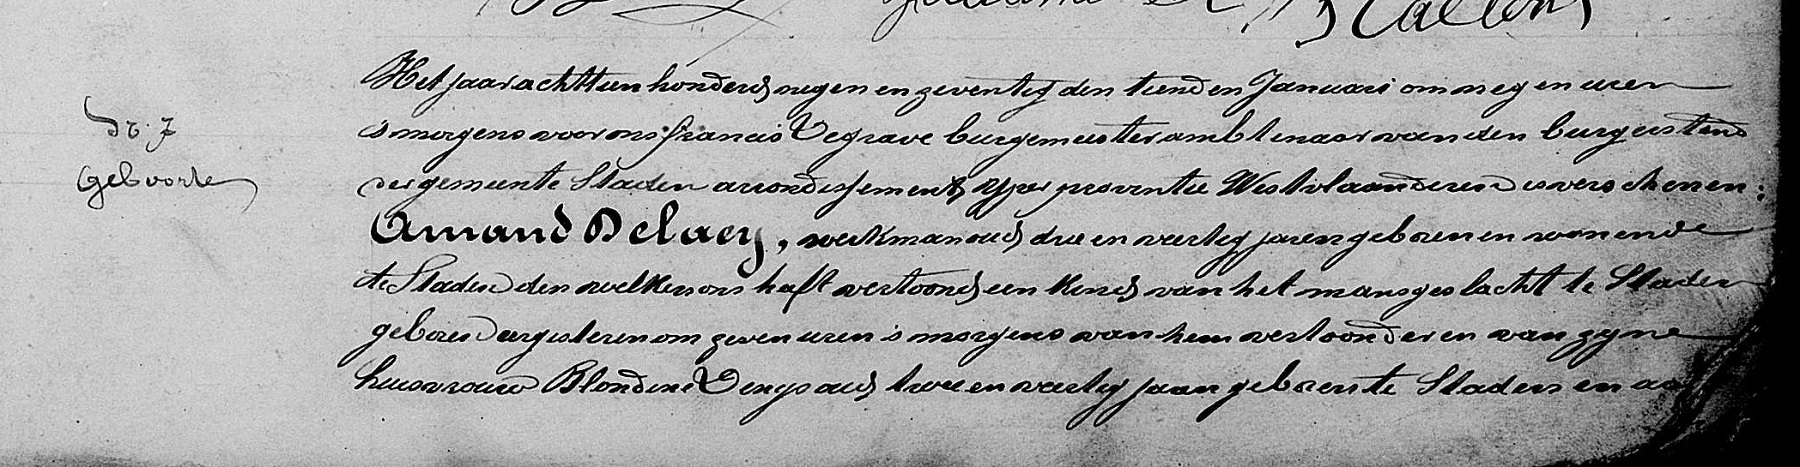 Het jaar achttien honderd negen en zeventig den tienden Januari om negen uren
Nr. 7
's morgens voor ons Francis Degrave burgemeester ambtenaar van den burgerstand
Geboorte
der gemeente Staden arrondissement Yper provintie Westvlaanderen is verschenen:
Amand Delaey, werkman oud drie en veertig jaren geboren en wonende
te Staden den welken ons heeft vertoond een kind van het mansgeslacht te Staden
geboren eergisteren om zeven uren 's morgens van hem vertoonder en van zyne
huisvrouw Blondine Denys oud twee en veertig jaar geboren te Staden en